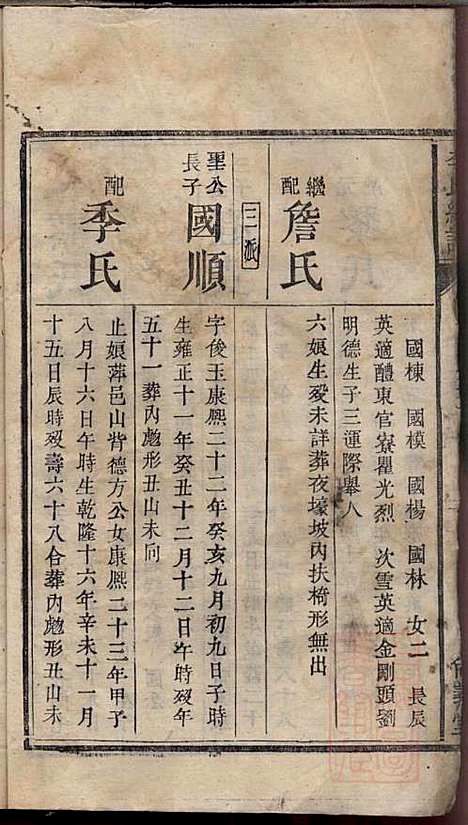 國棟 國模 國楊 國林 女二 長辰
英適醴東官寮瞿光烈 次雪英適金剛頭劉
明德生子三運際舉人
繼配 詹氏
六娘生歿未詳葬夜壕坡內扶椅形無出
三派
聖公長子 國順
字俊玉康熙二十二年癸亥九月初九日子時
生雍正十一年癸丑十二月十二日午時歿年
五十一葬內彪形丑山未向
配 季氏
止娘萍邑山背德方公女康熙二十三年甲子
八月十六日午時生乾隆十六年辛未十一月
十五日辰時歿壽六十八合葬內彪形丑山未